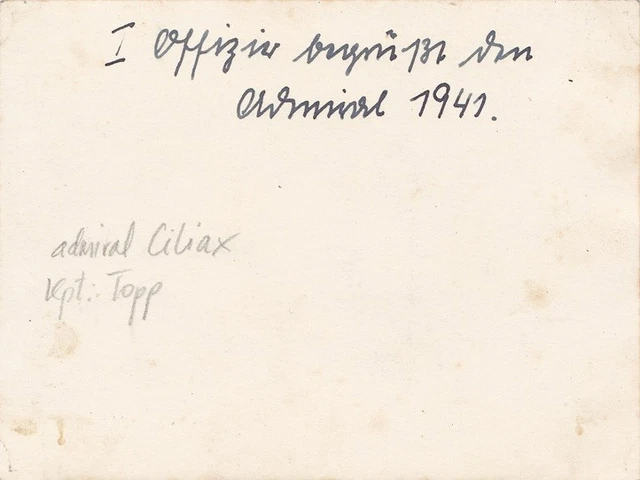 I Offizier begrüßt den
Admiral 1941.
admiral Ciliax
Kpt.: Topp